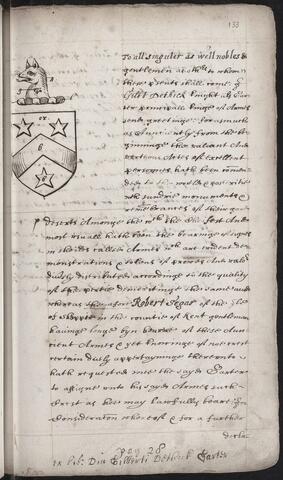 133
To all singuler as well nobles &
gentlemen as others to whom
these p̄sents shall come Sr
Gilbt Dethick knight als Gar-
ter principall kinge of Armes
send greetinge forasmuch
as Aunciently from the be-
ginninge the valiant And
vertuous Actes of excellent
persones hath been comen-
ded to the world & posterities
with sundrie monuments &
of their good
deserts Amongst the wch the chefest And
most usuall hath been the bearinge of signes
in shields called Armes wch are evident de-
monstrations & tokens of prowes And valor
diversly distributed accordinge to the quality
of the persons
whereas therefore Robert Segar of the Ile
of Sheppie in the countie of Kent gentleman
havinge longe byn bearer of these Aun-
cient Armes & yet knowinge of no crest
certain duly appertayninge thereunto
hath requested mee the sayd Garter
to assigne unto his sayd Armes such
Crest as hee may lawfully beare. In
Consideration whereof & for a further
decla-
or
B
pag 28
ex lib: Dni Gilberti Dethick Garter